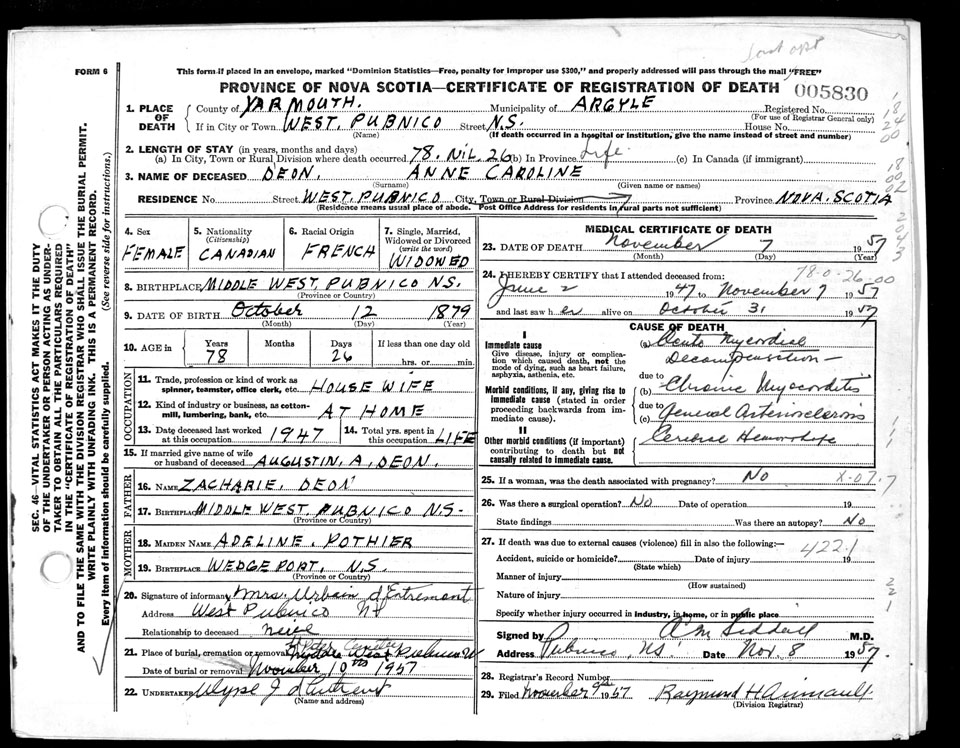 FORM 6
This form if placed in an envelope, marked "Dominion Statistics—Free, penalty for improper use $300," and properly addressed will pass through the mail "FREE"
PROVINCE OF NOVA SCOTIA—CERTIFICATE OF REGISTRATION OF DEATH 005830
1. PLACE OF DEATH County of YARMOUTH. Municipality of ARGYLE Registered No.
(For use of Registrar General only)
If in City or Town WEST. PUBNICO Street N.S. House No.
(Name) (If death occurred in a hospital or institution, give the name instead of street and number)
2. LENGTH OF STAY (in years, months and days)
(a) In City, Town or Rural Division where death occurred 78. NIL. 26 (b) In Province Life. (c) In Canada (if immigrant)
3. NAME OF DECEASED DEON. ANNE CAROLINE
(Surname) (Given name or names)
RESIDENCE No. Street WEST. PUBNICO City, Town or Rural Division Province NOVA. SCOTIA
(Residence means usual place of abode. Post Office Address for residents in rural parts not sufficient)
SEC. 46—VITAL STATISTICS ACT MAKES IT THE DUTY
OF THE UNDERTAKER OR PERSON ACTING AS UNDER-
TAKER TO OBTAIN ALL THE PARTICULARS REQUIRED
IN THE "CERTIFICATE OF REGISTRATION OF DEATH"
AND TO FILE THE SAME WITH THE DIVISION REGISTRAR WHO SHALL ISSUE THE BURIAL PERMIT.
WRITE PLAINLY WITH UNFADING INK. THIS IS A PERMANENT RECORD.
Every item of information should be carefully supplied. (See reverse side for instructions.)
4. Sex FEMALE
5. Nationality (Citizenship) CANADIAN
6. Racial Origin FRENCH
7. Single, Married, Widowed or Divorced (write the word) WIDOWED
8. BIRTHPLACE MIDDLE WEST. PUBNICO N.S.
(Province or Country)
9. DATE OF BIRTH October 12 1879
(Month) (Day) (Year)
10. AGE in Years Months Days If less than one day old
78 26 hrs. or min.
OCCUPATION
11. Trade, profession or kind of work as spinner, teamster, office clerk, etc. HOUSE WIFE
12. Kind of industry or business, as cotton-mill, lumbering, bank, etc. AT HOME
13. Date deceased last worked at this occupation 1947 14. Total yrs. spent in this occupation LIFE
15. If married give name of wife or husband of deceased AUGUSTIN. A. DEON.
FATHER
16. Name ZACHARIE. DEON
17. Birthplace MIDDLE WEST. PUBNICO N.S.
(Province or Country)
MOTHER
18. Maiden Name ADELINE. POTHIER
19. Birthplace WEDGEPORT, N.S.
(Province or Country)
20. Signature of informant Mrs. Urbain d'Entremont
Address West Pubnico NS
Relationship to deceased niece
21. Place of burial, cremation or removal West Pubnico
Date of burial or removal November 10th 1957
22. Undertaker Ulysse J d'Entremont
(Name and address)
MEDICAL CERTIFICATE OF DEATH
23. DATE OF DEATH November 7 1957
(Month) (Day) (Year)
78-0-26-00
24. I HEREBY CERTIFY that I attended deceased from:
June 2 1947 to November 7 1957
and last saw her alive on October 31 1957
CAUSE OF DEATH
I
Immediate cause
Give disease, injury or complication which caused death, not the mode of dying, such as heart failure, asphyxia, asthenia, etc.
(a) Acute Myocardial
Decompensation—
due to
(b) Chronic Myocarditis
Morbid conditions, if any, giving rise to immediate cause (stated in order proceeding backwards from immediate cause).
due to
(c) General Arteriosclerosis
II
Other morbid conditions (if important) contributing to death but not causally related to immediate cause.
Cerebral Hemorrhage
25. If a woman, was the death associated with pregnancy? NO X-07.7
26. Was there a surgical operation? NO Date of operation 19
State findings Was there an autopsy? No
27. If death was due to external causes (violence) fill in also the following:— 422.1
Accident, suicide or homicide? Date of injury 19
(State which)
Manner of injury
(How sustained)
Nature of injury
Specify whether injury occurred in industry, in home, or in public place
Signed by A M Siddall M.D.
Address Pubnico, NS. Date Nov. 8 1957
28. Registrar's Record Number
29. Filed November 9th 1957 Raymond H Amirault
(Division Registrar)